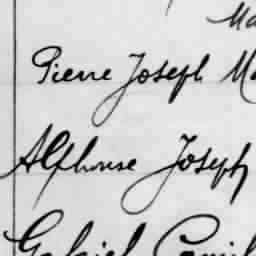 Ma
Pierre Joseph Ma
Alphonse Joseph
Gabriel Camil